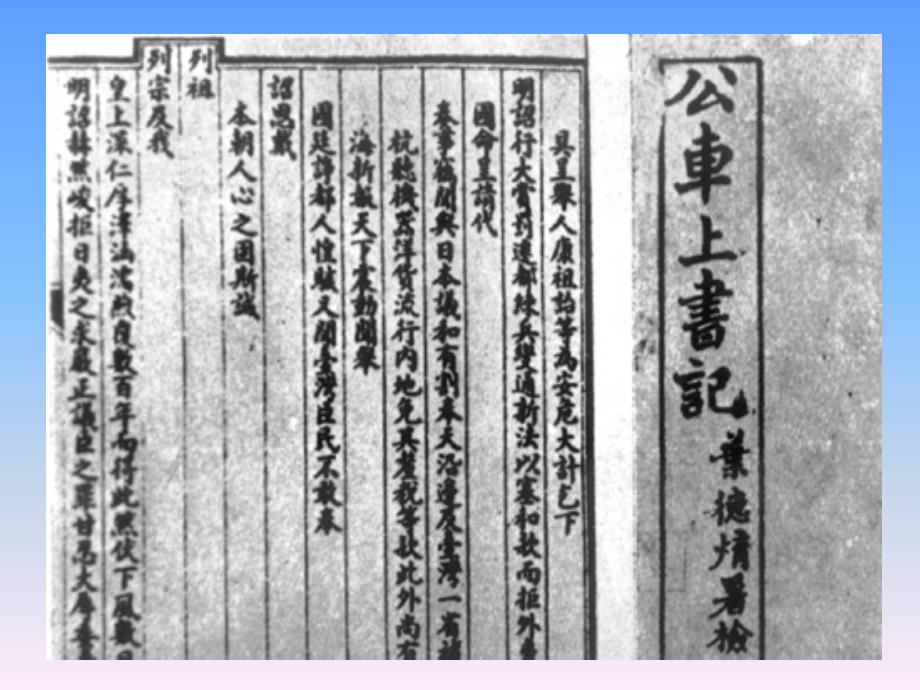 公車上書記
葉德煇署檢
具呈舉人康祖詒等為安危大計乞下
明詔行大賞罰遷都練兵變通新法以塞和款而拒外
國命呈請代
奏事竊聞與日本議和有割奉天沿邊及臺灣一省補
杭聽機器洋貨流行內地免其釐稅等款此外尚有
海新報天下震動聞舉
國廷諍都人惶駭又聞臺灣臣民不敢奉
詔思戴
本朝人心之固斯誠
列祖
列宗及我
皇上深仁厚澤涵濡煦覆數百年而得此然伏下風數日
明詔赫然峻拒日夷之求嚴正議臣之罪甘忍大辱